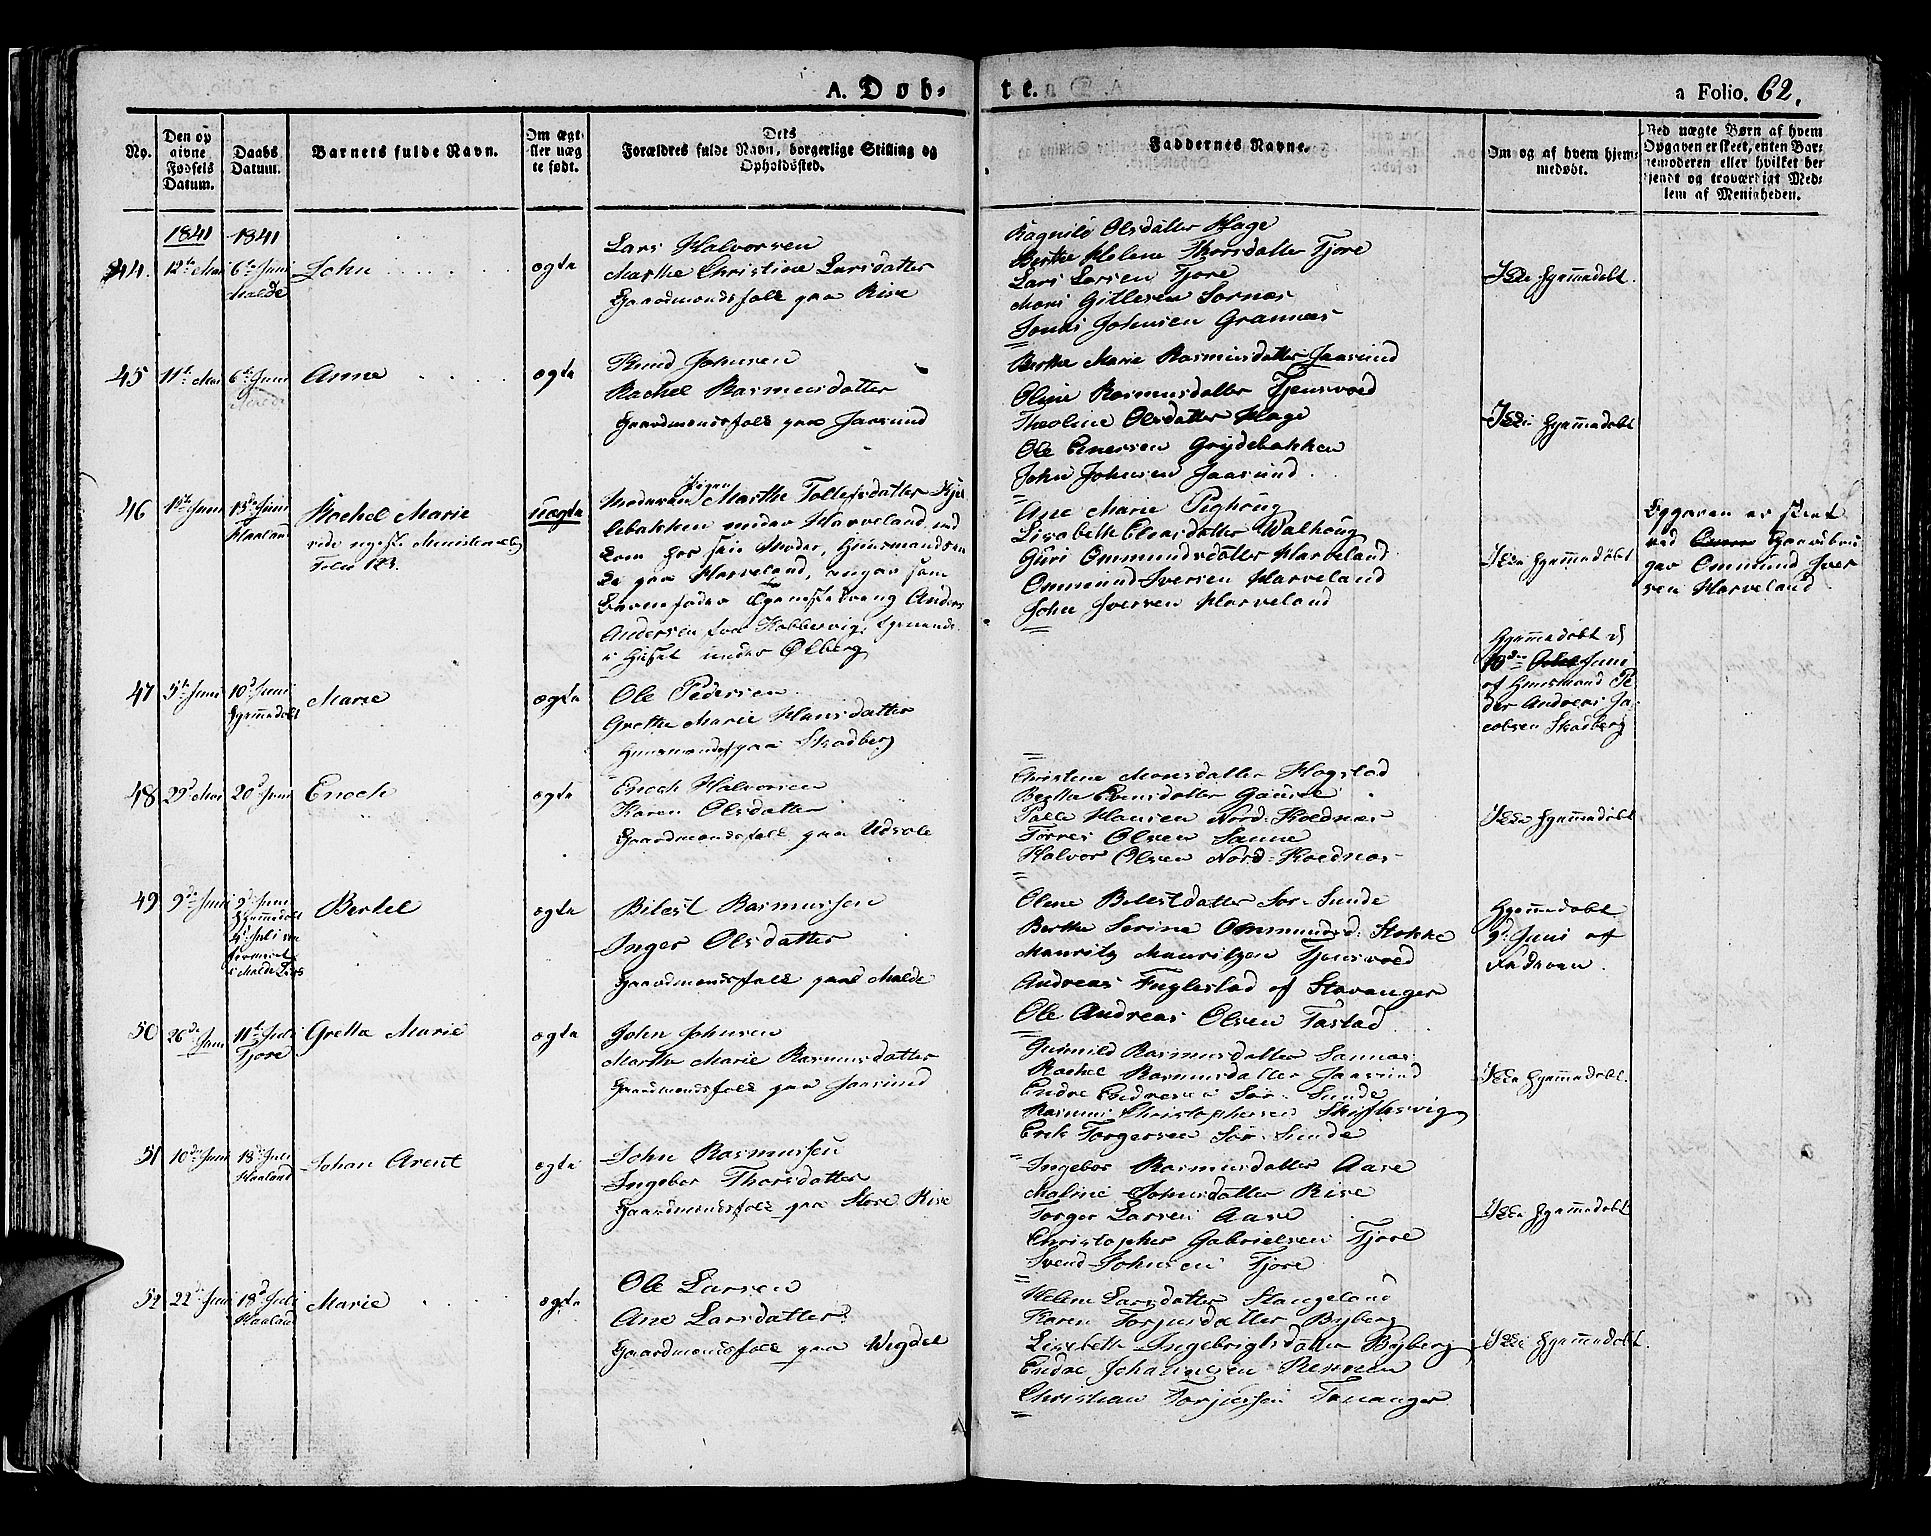 A. Døb-
te.
a Folio. 62.
No.
Den opgivne Fødsels Datum.
Daabs Datum.
Barnets fulde Navn.
Om ægte eller uægte født.
Dets Forældres fulde Navn, borgerlige Stilling og Opholdssted.
Faddernes Navne.
Om og af hvem hjemmedøbt.
Ved uægte Børn af hvem Opgaven er skeet, enten Barnemoderen eller hvilket bekjendt og troværdigt Medlem af Menigheden.
1841 1841
44. 12te Mai 6te Juni
Malde
John
ægte
Lars Halvorsen
Marthe Christine Larsdatter
Gaardmandsfolk paa Rise
Ragnild Olsdatter Hage
Berthe Helene Thorsdatter Fjore
Lars Larsen Fjore
Mons Gitlesen Sornæs
Jonas Johnsen Grannæs
Ikke hjemmedøbt.
45 11te Mai 6te Juni
Anna
ægte
Knud Johnsen
Rachel Rasmusdatter
Gaardmandsfolk paa Jaasund
Berthe Marie Rasmusdatter Jaasund
Oline Rasmusdatter Tjensvold
Theoline Olsdatter Hage
Ole Enersen Grydebakken
John Johnsen Jaasund.
Ikke hjemmedøbt
46 1te Juni 13de Juni
Haaland
Rachel Marie
vide nyeste Ministerialbog
Folio 123.
uægte
Pigen
Moderen Marthe Tollefsdatter Kjel
lebakken under Harveland, ved
kom for sin Moder, Huusmandsen
ke paa Harveland, angav som
Barnefader Ungkarl Anders
Andersen fra Kobbervig, tjenende
i Huset under Ølberg
Ane Marie Pighoug
Lisabeth Clausdatter Walhoug
Guri Ommundsdatter Harveland
Ommund Iversen Harveland
John Iversen Harveland
Ikke hjemmedøbt
Opgaven er skeet
ved Gaardbru
ger Ommund Iver
sen Harveland
47 5te Juni 10de Juni
hjemmedøbt
Marie
ægte
Ole Pedersen
Grethe Marie Hansdatter
Huusmandsf. paa Skadberg
Hjemmedøbt d.
10de Juni
af Huusmand Pe
der Andreas Ja
cobsen Skadberg
48 29de Mai 20de Juni
Enoch
ægte
Enoch Halvorsen
Karen Olsdatter
Gaardmandsfolk paa Udsole
Christine Monsdatter Hogstad
Bertha Evensdatter Gausel
Palle Hansen Nord-Kolnæs
Torres Olsen Sanne
Halvor Olsen Nord-Kolnæs
Ikke hjemmedøbt
49 9de Juni 9de Juni
hjemmedøbt
Juli
Bertel
ægte
Bilest Rasmussen
Inger Olsdatter
Gaardmandsfolk paa Malde
Oline Bilestdatter Sør-Sunde
Berthe Serina Ommundsd. Stokke
Mauritz Mauritzen Tjensvold
Andreas Fuglestad af Stavanger
Ole Andreas Olsen Tastad
Hjemmedøbt
9de Juni af
Faderen.
50 26de Juni 11te Juli
Fjore
Grethe Marie
ægte
John Johnsen
Marthe Marie Rasmusdatter
Gaardmandsfolk paa Jaasund
Gunild Rasmusdatter Sannæs
Rachel Rasmusdatter Jaasund
Endre Endresen Sør-Sunde
Rasmus Christophersen Skiftesvig
Erik Torgersen Sør-Sunde
Ikke hjemmedøbt.
51 10de Juni 18de Juli
Haaland
Johan Arent
ægte
John Rasmussen
Ingebor Thorsdatter
Gaardmandsfolk paa Store Rise
Ingebor Rasmusdatter Aase
Maline Johnsdatter Rise
Torger Larsen Aase
Christopher Gabrielsen Fjore
Svend Johnsen Fjore
Ikke hjemmedøbt
52 22de Juni 18de Juli
Haaland
Marie
ægte
Ole Larsen
Ane Larsdatter
Gaardmandsfolk paa Wigdel
Helene Larsdatter Stangeland
Karen Torjusdatter Byberg
Lisabeth Ingebrigtsdatter Byberg
Endre Johannesen Rennen
Christian Torjussen Tananger
Ikke hjemmedøbt.